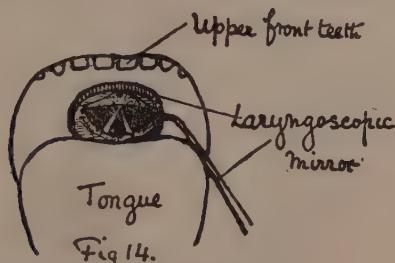 Upper front teeth
Laryngoscopic
Mirror
Tongue
Fig 14.